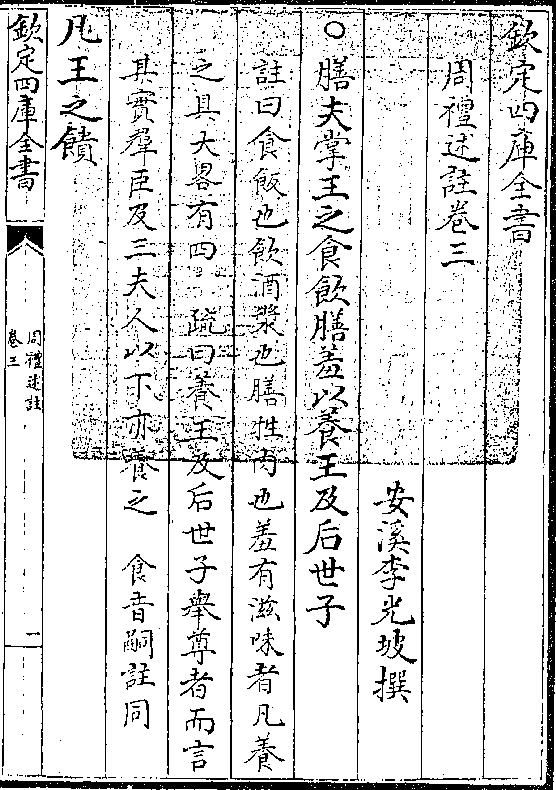 欽定四庫全書
周禮述註卷三
安溪李光坡撰
○膳夫掌王之食飲膳羞以養王及后世子
註曰食飯也飲酒漿也膳牲肉也羞有滋味者凡養
之具大畧有四 疏曰養王及后世子舉尊者而言
其實羣臣及三夫人以下亦養之 食音嗣註同
凡王之饋
欽定四庫全書
周禮述註
卷三
一